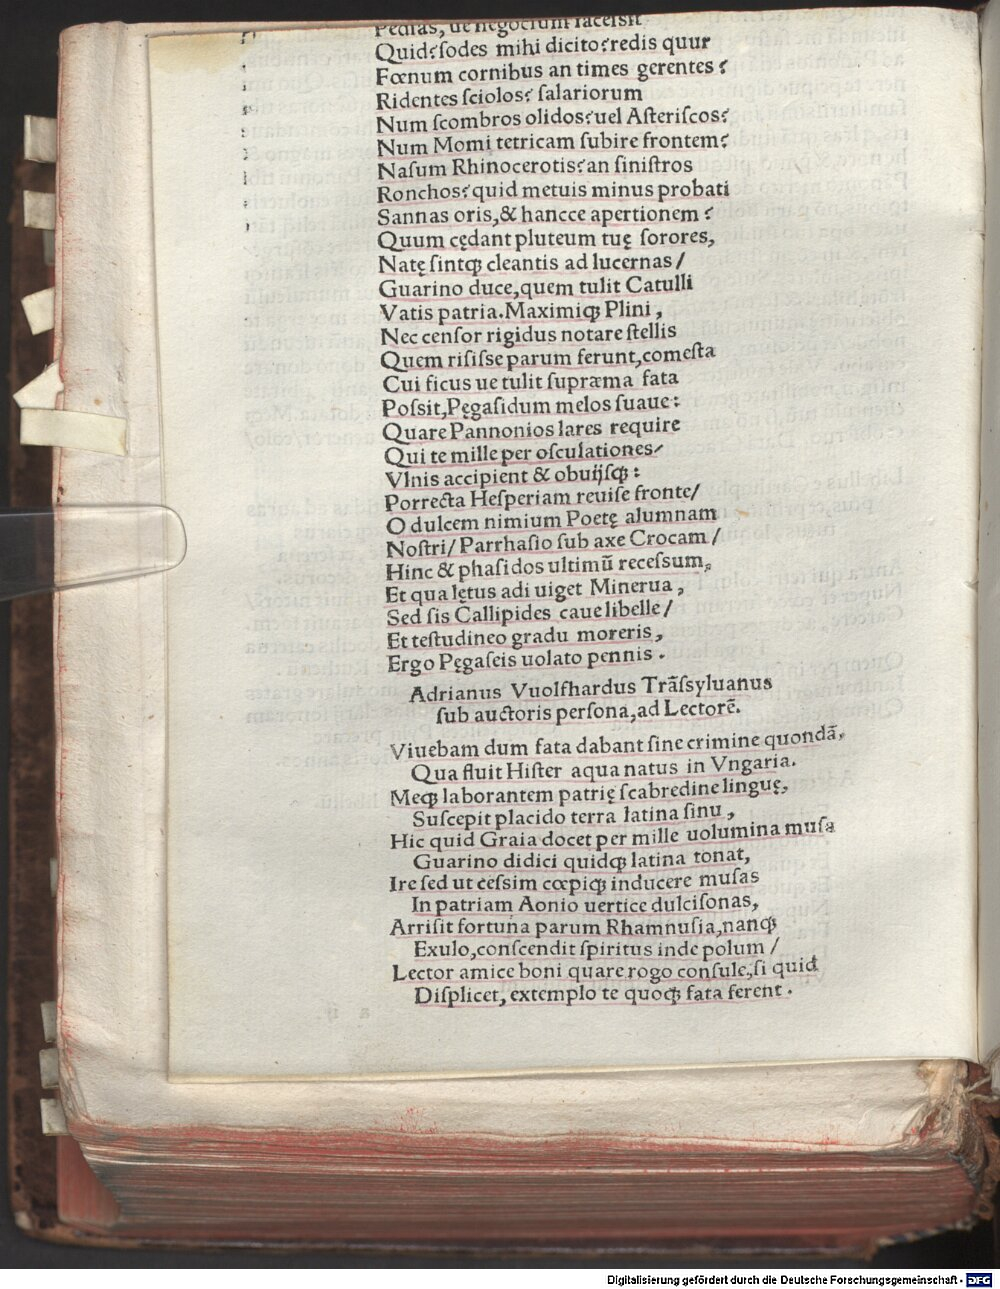 Pedias, ue negocium facessit
Quid?sodes mihi dicito?redis quur
Fœnum cornibus an times gerentes?
Ridentes sciolos? salariorum
Num scombros olidos?uel Asteriscos?
Num Momi tetricam subire frontem?
Nasum Rhinocerotis?an sinistros
Ronchos?quid metuis minus probati
Sannas oris,& hancce apertionem?
Quum cędant pluteum tuę sorores,
Natę sintqꝫ cleantis ad lucernas/
Guarino duce,quem tulit Catulli
Vatis patria.Maximiqꝫ Plini,
Nec censor rigidus notare stellis
Quem risisse parum ferunt,comesta
Cui ficus ue tulit supræma fata
Possit,Pęgasidum melos suaue:
Quare Pannonios lares require
Qui te mille per osculationes/
Vlnis accipient & obuijsqꝫ:
Porrecta Hesperiam reuise fronte/
O dulcem nimium Poetę alumnam
Nostri/Parrhasio sub axe Crocam/
Hinc & phasidos ultimū recessum,
Et qua lętus adi uiget Minerua,
Sed sis Callipides caue libelle/
Et testudineo gradu moreris,
Ergo Pęgaseis uolato pennis.
Adrianus Vuolfhardus Trāssyluanus
sub auctoris persona,ad Lectorē.
Viuebam dum fata dabant sine crimine quondā,
Qua fluit Hister aqua natus in Vngaria.
Meqꝫ laborantem patrię scabredine linguę,
Suscepit placido terra latina sinu,
Hic quid Graia docet per mille uolumina musa
Guarino didici quidqꝫ latina tonat,
Ire sed ut cessim cœpiqꝫ inducere musas
In patriam Aonio uertice dulcisonas,
Arrisit fortuna parum Rhamnusia,nanqꝫ
Exulo,conscendit spiritus inde polum/
Lector amice boni quare rogo consule,si quid
Displicet, extemplo te quoqꝫ fata ferent.
Digitalisierung gefördert durch die Deutsche Forschungsgemeinschaft - DFG